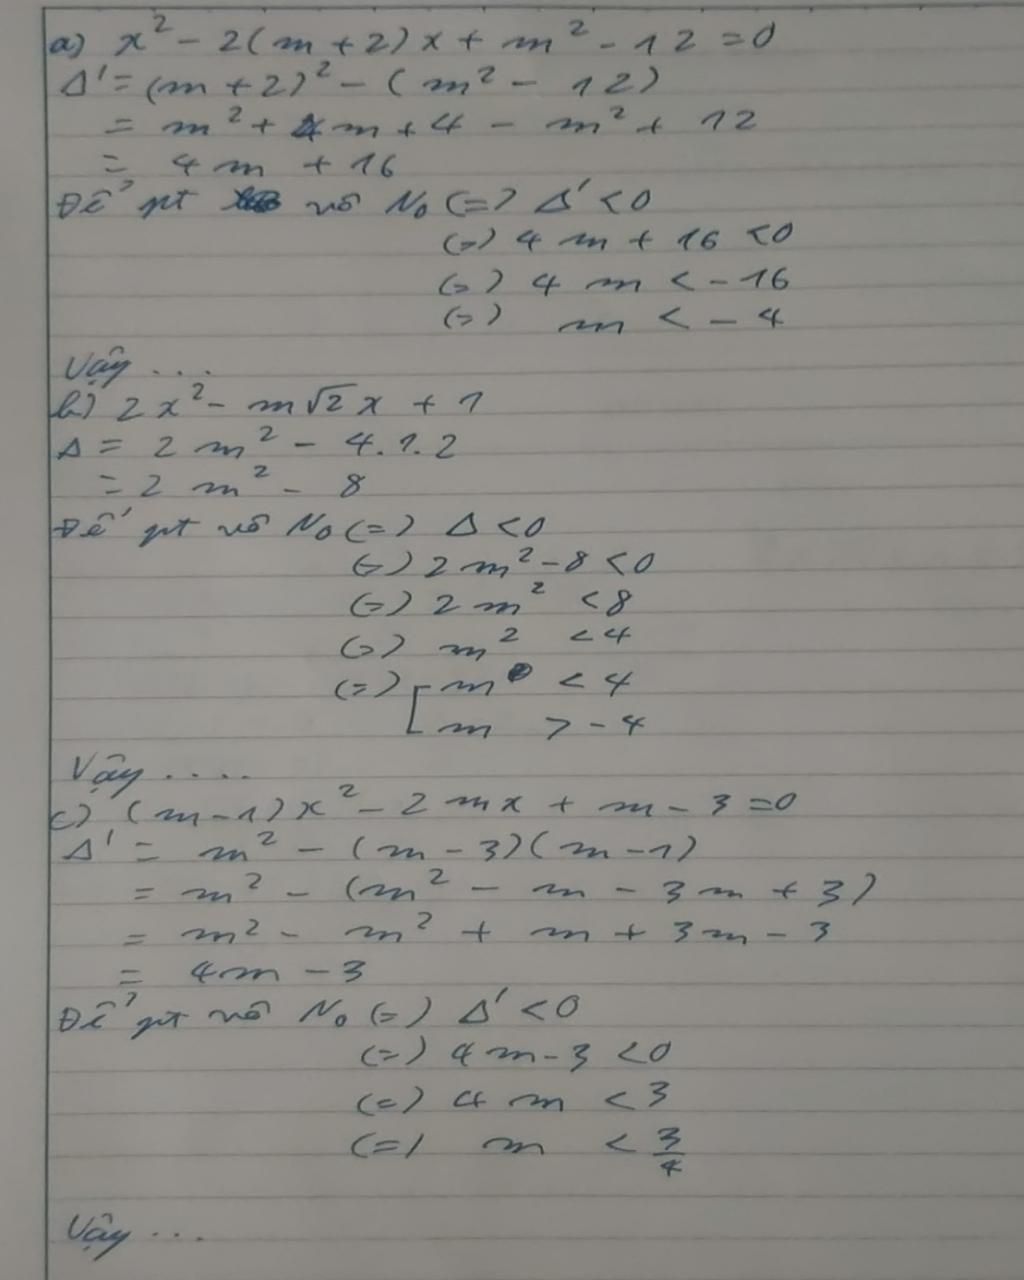 a) x² - 2(m+2)x + m² - 12 = 0
Δ' = (m+2)² - (m² - 12)
= m² + 4m + 4 - m² + 12
= 4m + 16
Để pt vô No (=) Δ' < 0
(=) 4m + 16 < 0
(=) 4m < -16
(=) m < -4
Vậy ...
b) 2x² - m√2x + 1
Δ = 2m² - 4.1.2
= 2m² - 8
Để pt vô No (=) Δ < 0
(=) 2m² - 8 < 0
(=) 2m² < 8
(=) m² < 4
(=) [ m < 4
m > -4
Vậy ....
c) (m-1)x² - 2mx + m - 3 = 0
Δ' = m² - (m-3)(m-1)
= m² - (m² - m - 3m + 3)
= m² - m² + m + 3m - 3
= 4m - 3
Để pt vô No (=) Δ' < 0
(=) 4m - 3 < 0
(=) 4m < 3
(=) m < 3/4
Vậy ...